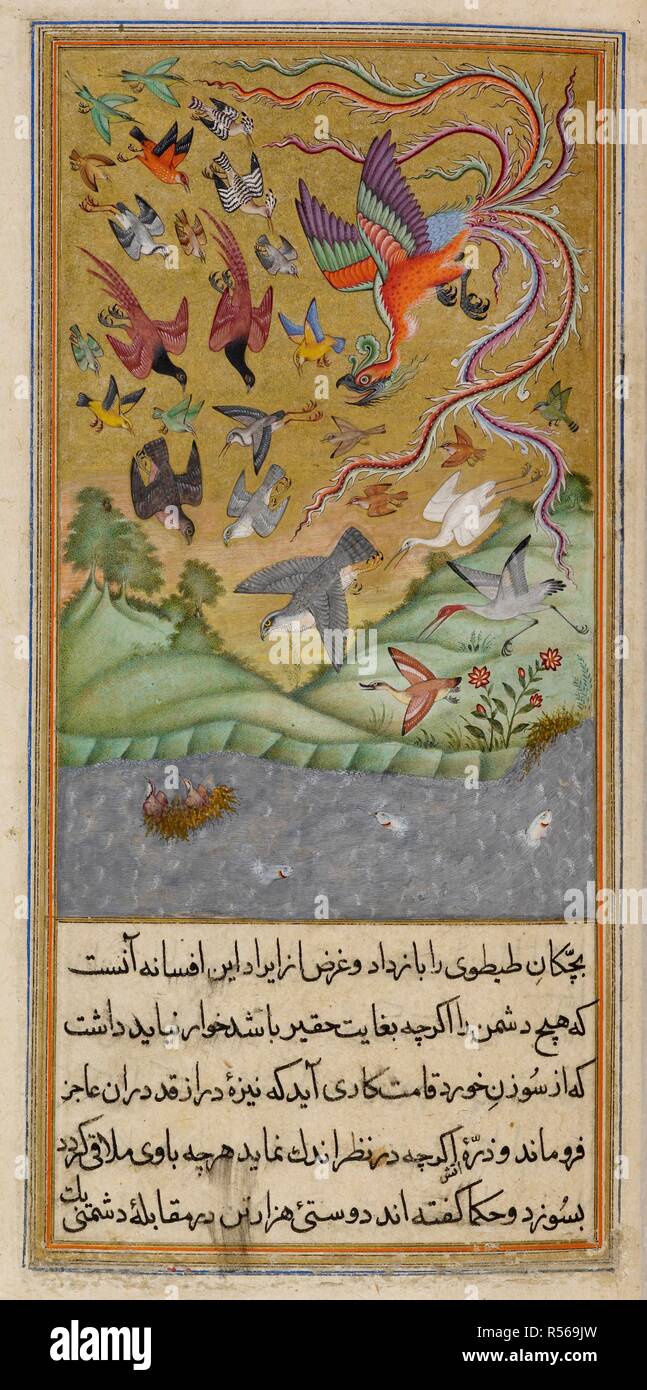 بچّکانِ طیطوی را بازداد و غرض از ایراد این افسانه آنست
که هیچ دشمن را اگرچه بغایت حقیر باشد خوار نباید داشت
که از سوزنِ خورد قامت کاری آید که نیزهٔ دراز قد دران عاجز
فروماند و ذرّهٔ آتش اگرچه در نظر اندك نماید هرچه باوی ملاقی گردد
بسوزد و حکما گفته اند دوستیٔ هزار تن در مقابلهٔ دشمنیٔ یك
alamy
alamy
Image ID: R569JW
www.alamy.com